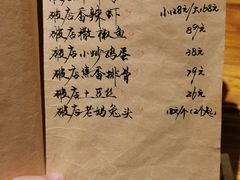 破店香辣虾 小128元/大168元
破店撒椒鱼 89元
破店小炒鸡蛋 38元
破店蕉香排骨 79元
破店土豆丝 26元
破店老妈兔头 18元/个(2个起)